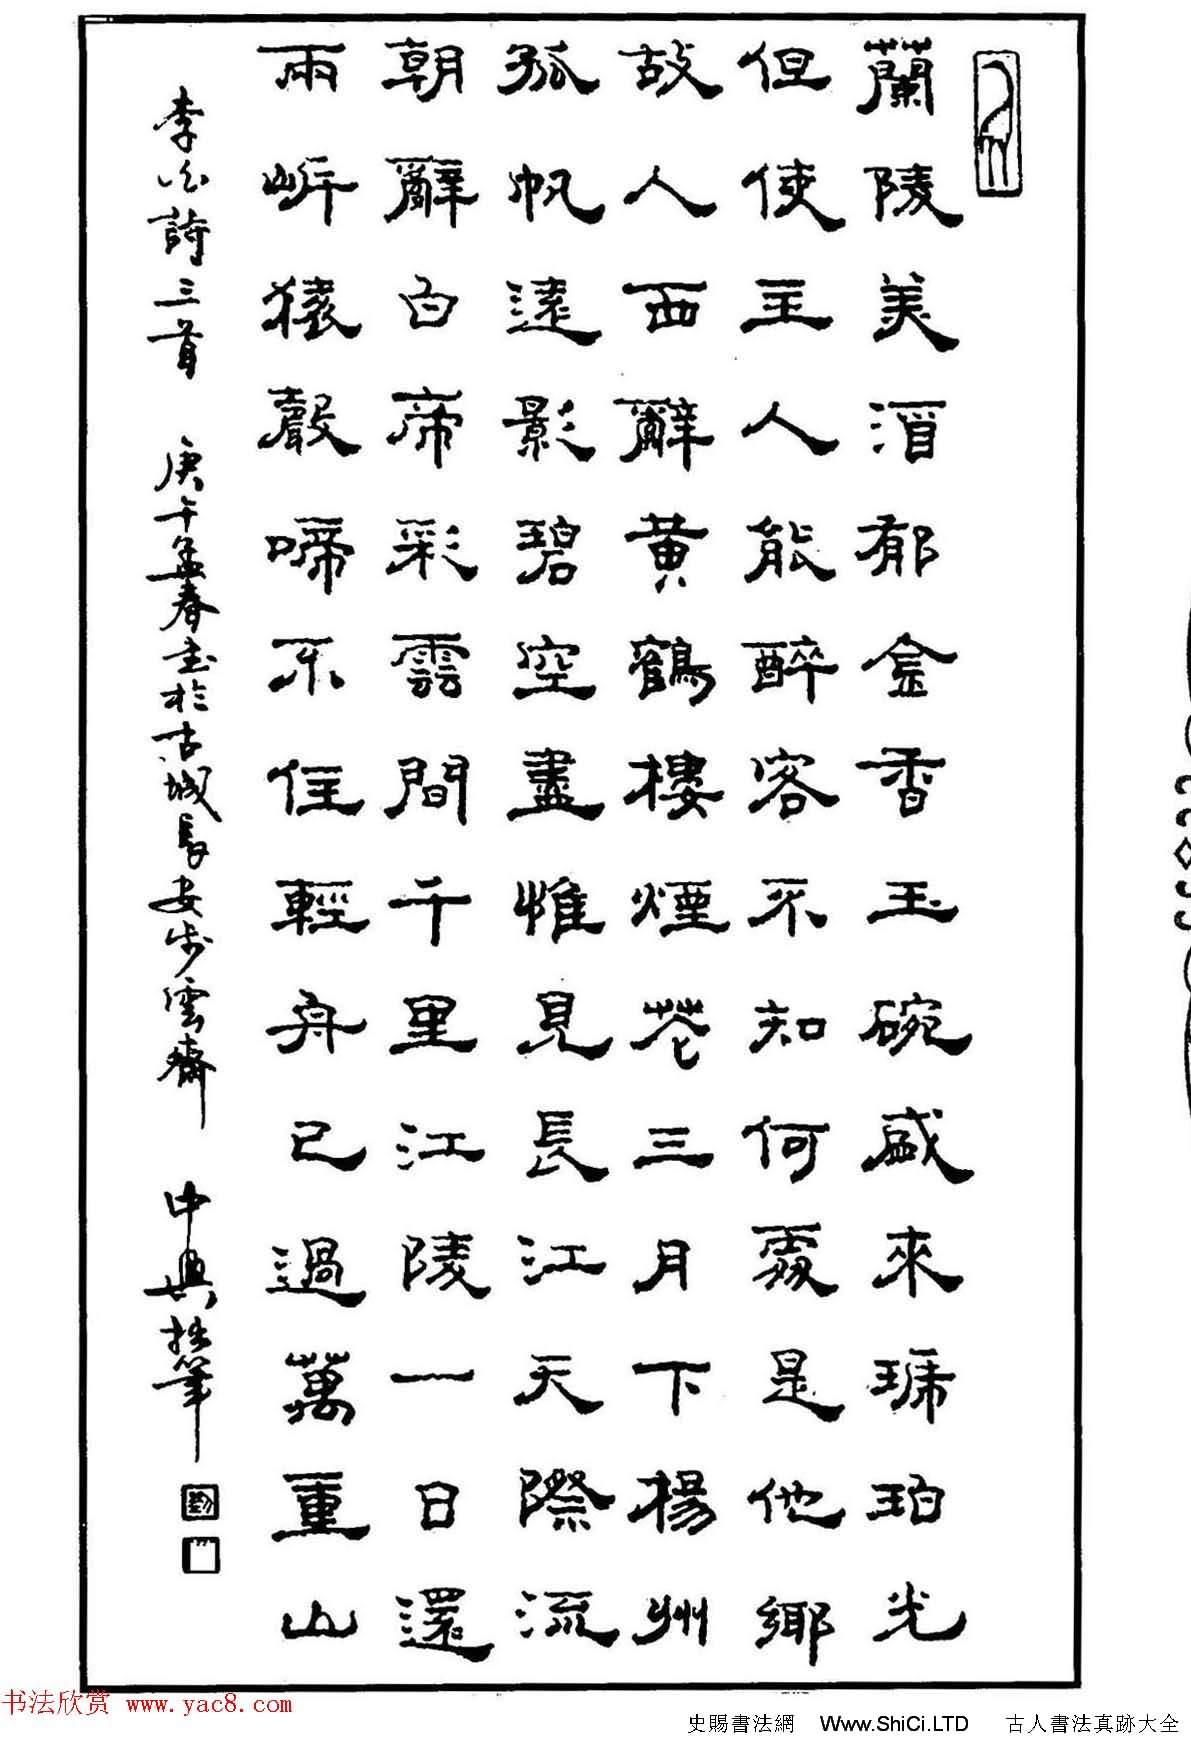 蘭陵美酒郁金香玉碗盛來琥珀光
但使主人能醉客不知何處是他鄉
故人西辭黃鶴樓煙花三月下楊州
孤帆遠影碧空盡惟見長江天際流
朝辭白帝彩雲間千里江陵一日還
兩岸猿聲啼不住輕舟已過萬重山
李白詩三首 庚午孟春書於古城長安步雲齋 中興拙筆
书法欣赏 www.yac8.com
史賜書法網 Www.ShiCi.LTD 古人書法真跡大全